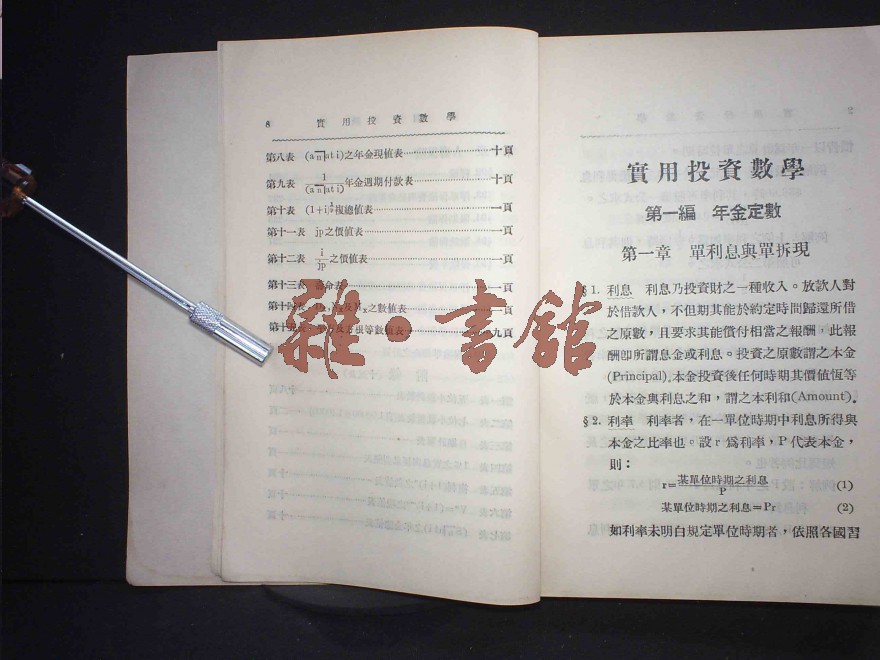 8 實用投資數學
第八表 (a n̅| at i)之年金現值表……十頁
第九表 1/(a n̅| at i)年金週期付款表……十頁
第十表 (1+i)複總值表……一頁
第十一表 jp之價值表……一頁
第十二表 i/jp之價值表……一頁
第十三表 命表……一頁
一頁
九頁
雜·書館
實用投資數學
第一編 年金定數
第一章 單利息與單拆現
§1. 利息 利息乃投資財之一種收入。放款人對
於借款人，不但期其能於約定時間歸還所借
之原數，且要求其能償付相當之報酬；此報
酬卽所謂息金或利息。投資之原數謂之本金
(Principal)，本金投資後任何時期其價値恆等
於本金與利息之和，謂之本利和(Amount)。
§2. 利率 利率者，在一單位時期中利息所得與
本金之比率也。設 r 爲利率，P 代表本金，
則：
r=某單位時期之利息/P (1)
某單位時期之利息=Pr (2)
如利率未明白規定單位時期者，依照各國習